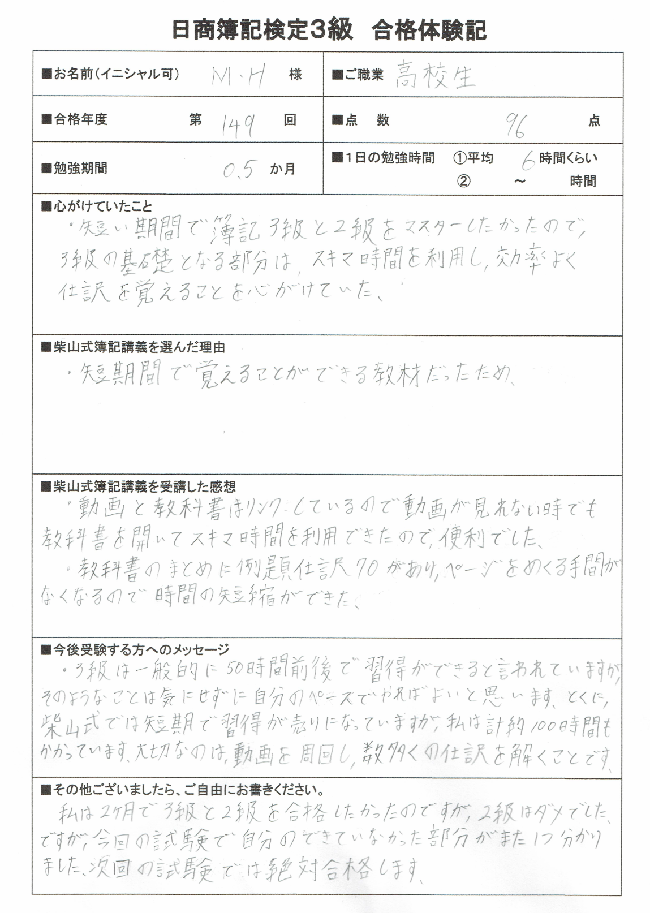 日商簿記検定3級 合格体験記
■お名前(イニシャル可) M・H 様
■ご職業 高校生
■合格年度 第 149 回
■点 数 96 点
■勉強期間 0.5 か月
■1日の勉強時間 ①平均 6 時間くらい
② ~ 時間
■心がけていたこと
・短い期間で簿記3級と2級をマスターしたかったので、
3級の基礎となる部分は、スキマ時間を利用し、効率よく
仕訳を覚えることを心がけていた。
■柴山式簿記講義を選んだ理由
・短期間で覚えることができる教材だったため、
■柴山式簿記講義を受講した感想
・動画と教科書はリンクしているので動画が見れない時でも
教科書を開いてスキマ時間を利用できたので、便利でした。
・教科書のまとめに例題仕訳70があり、ページをめくる手間が
なくなるので時間の短縮ができた。
■今後受験する方へのメッセージ
・3級は一般的に50時間前後で習得ができると言われていますが、
そのようなことは気にせずに自分のペースでやればよいと思います。とくに、
柴山式では短期で習得が売りになっていますが、私は計約100時間も
かかっています。大切なのは、動画を周回し、数多くの仕訳を解くことです。
■その他ございましたら、ご自由にお書きください。
私は2ヶ月で3級と2級を合格したかったのですが、2級はダメでした。
ですが、今回の試験で自分のできていなかった部分がまた1つ分かり
ました。次回の試験では絶対合格します。